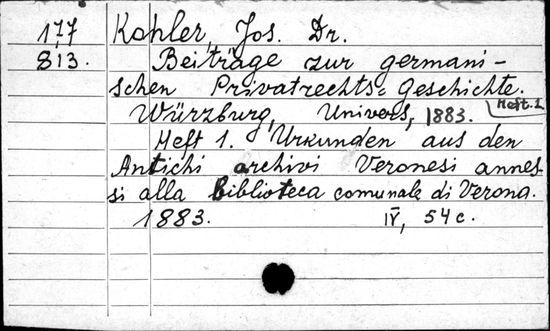 177 Kohler, Jos. Dr.
813. Beiträge zur germani-
schen Privatrechts-Geschichte.
Würzburg, Univers, 1883. Heft. 1
Heft 1. Urkunden aus den
Antichi archivi Veronesi annes-
si alla Biblioteca comunale di Verona.
1883. IV, 54 c.